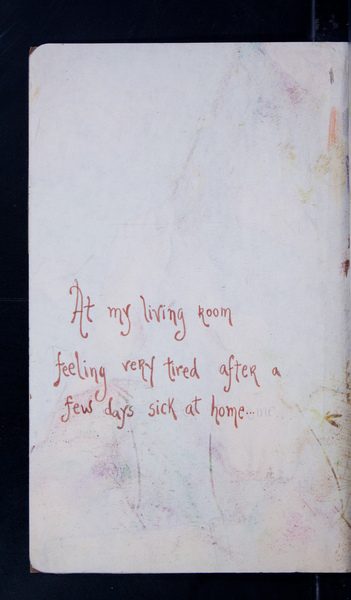 At my living room
feeling very tired after a
few days sick at home...